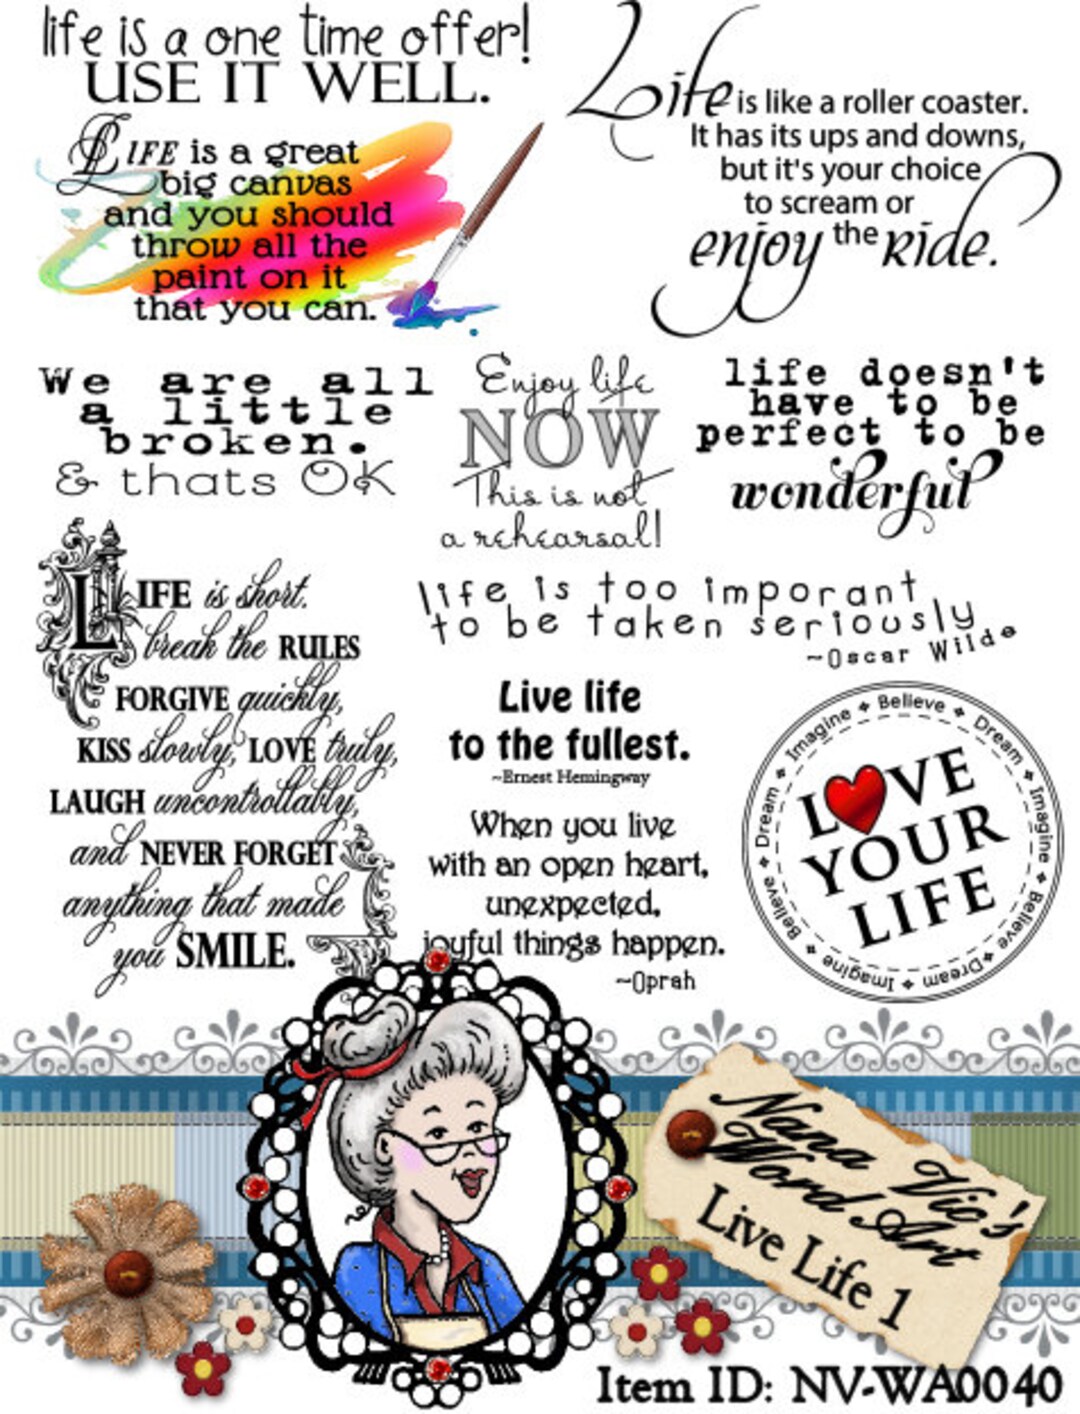 life is a one time offer!
USE IT WELL.
LIFE is a great
big canvas
and you should
throw all the
paint on it
that you can.
Life is like a roller coaster.
It has its ups and downs,
but it's your choice
to scream or
enjoy the RIDE.
We are all
a little
broken.
& thats OK
Enjoy life
NOW
This is not
a rehearsal!
life doesn't
have to be
perfect to be
wonderful
LIFE is short.
break the RULES
FORGIVE quickly,
KISS slowly, LOVE truly,
LAUGH uncontrollably,
and NEVER FORGET
anything that made
you SMILE.
life is too imporant
to be taken seriously
~Oscar Wilde
Live life
to the fullest.
~Ernest Hemingway
When you live
with an open heart,
unexpected,
joyful things happen.
~Oprah
Imagine Believe Dream Imagine Believe Dream Imagine Believe Dream
LOVE
YOUR
LIFE
Nana Vic's
Word Art
Live Life 1
Item ID: NV-WA0040